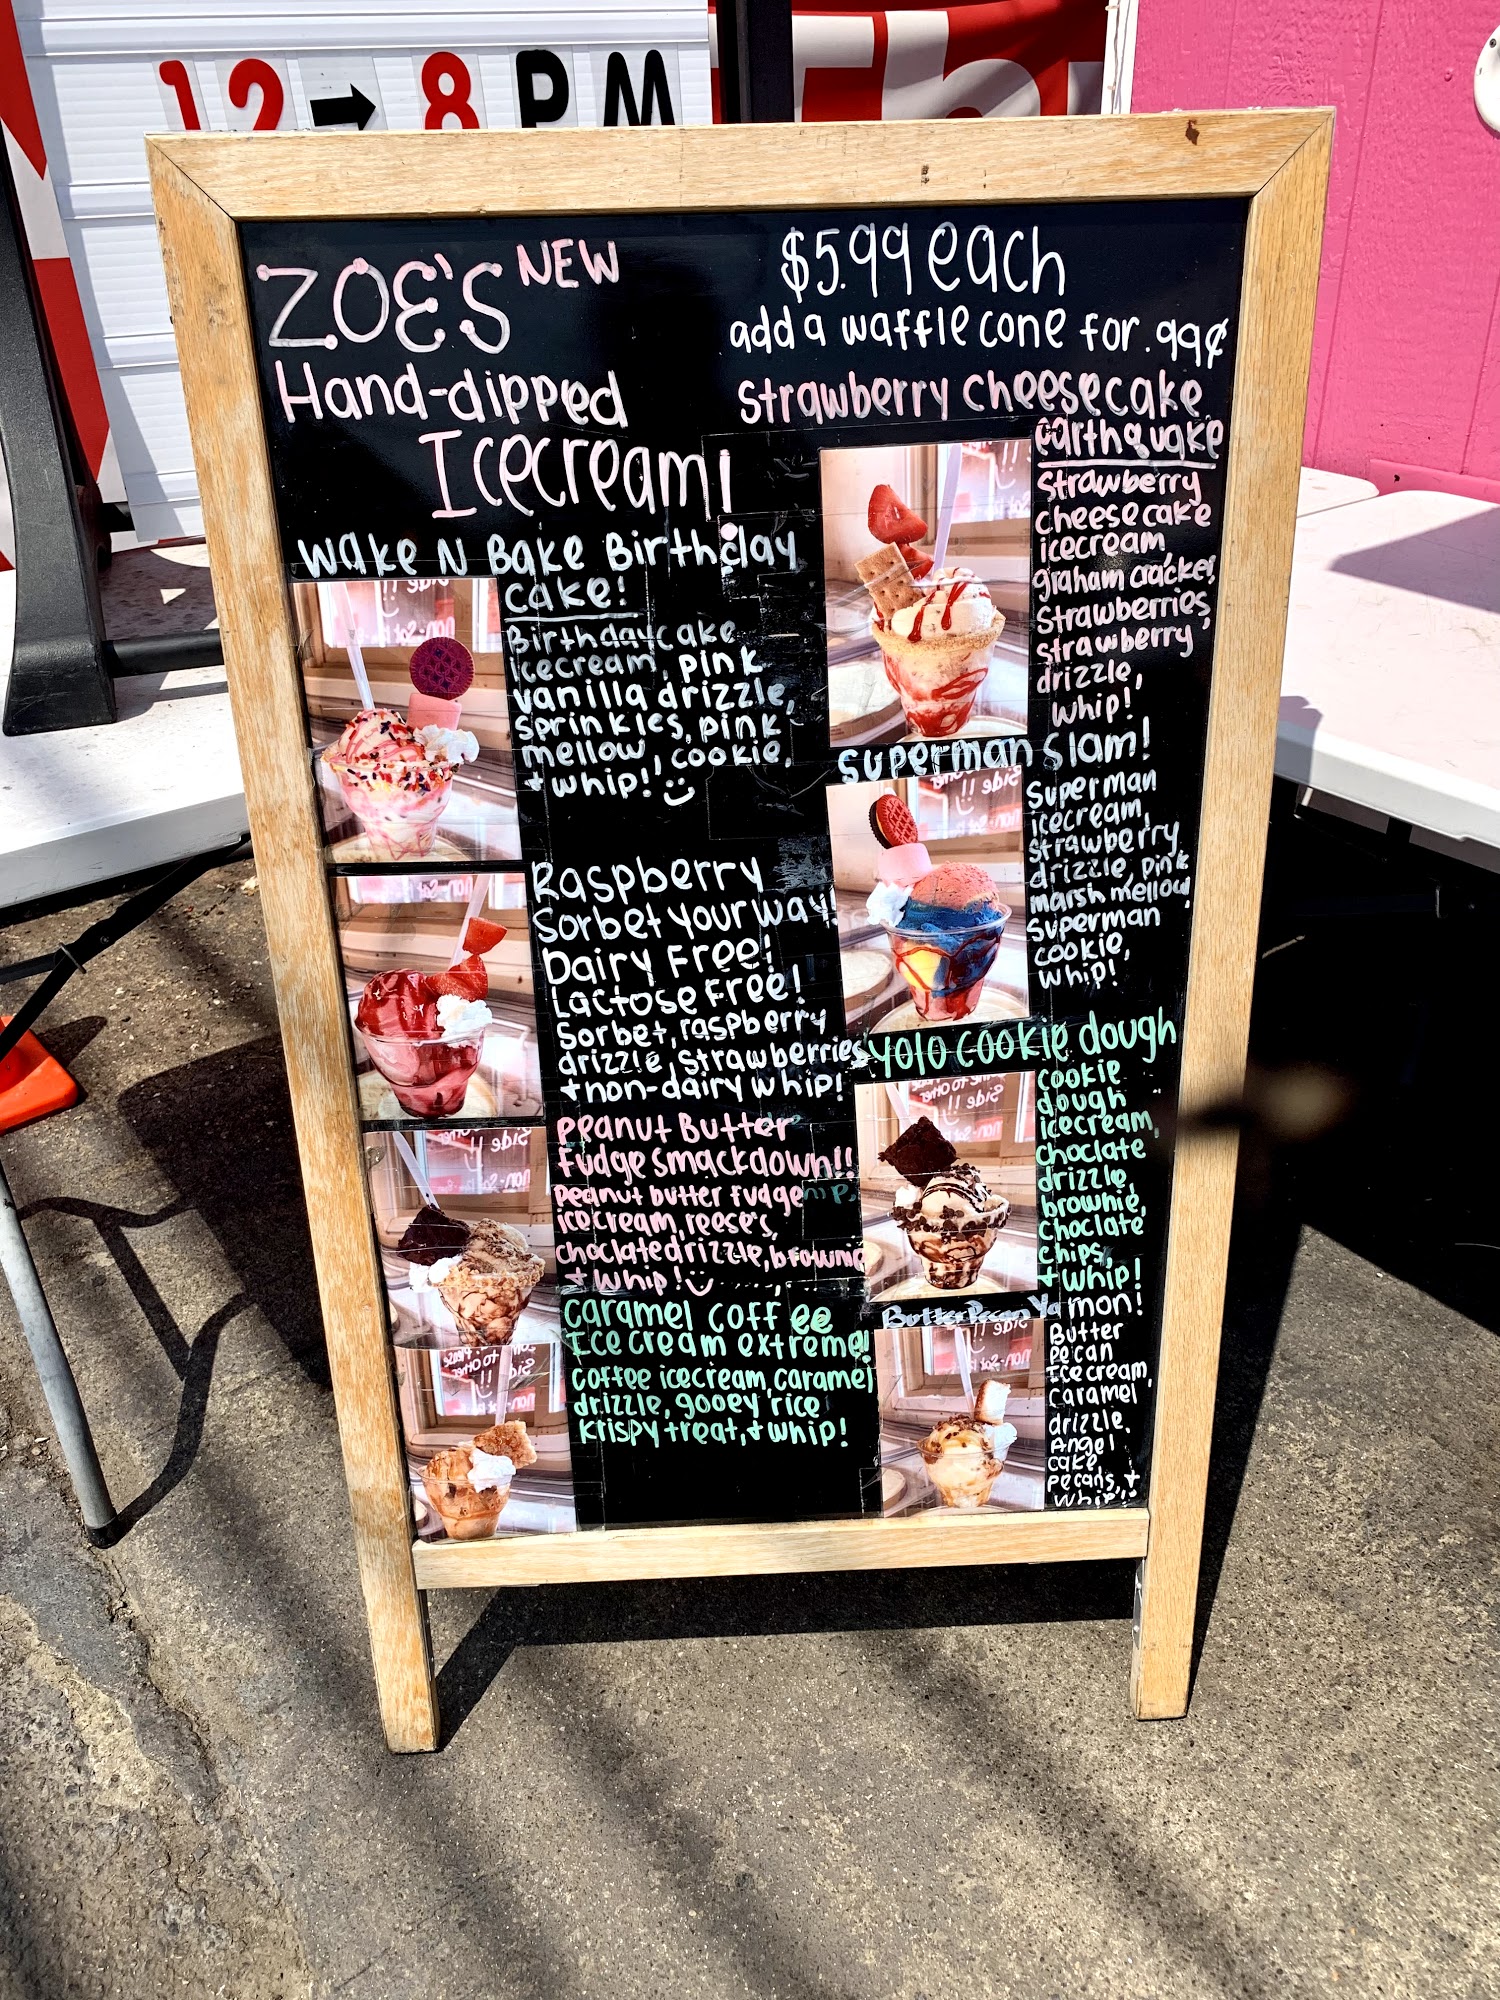 12 → 8 PM
ZOE'S NEW
Hand-dipped
Icecream!
$5.99 each
add a waffle cone for .99¢
Wake N Bake Birthday
cake!
Birthdaycake
icecream, pink
vanilla drizzle,
sprinkles, pink
mellow, cookie,
+ whip!
Raspberry
Sorbet your way!
Dairy Free!
Lactose Free!
Sorbet, raspberry
drizzle, strawberries
+ non-dairy whip!
Peanut Butter
Fudge smackdown!!
Peanut butter fudge
icecream, reese's,
choclate drizzle, brownie
+ whip!
Caramel Coffee
Ice cream extreme!
Coffee icecream, caramel
drizzle, gooey rice
krispy treat, + whip!
Strawberry Cheesecake
earthquake
Strawberry
cheesecake
icecream,
graham cracker,
Strawberries,
strawberry
drizzle,
whip!
Superman Slam!
Superman
icecream,
strawberry
drizzle, pink
marshmellow,
Superman
cookie,
whip!
YOLO cookie dough
cookie
dough
icecream,
choclate
drizzle,
brownie,
choclate
chips,
+ whip!
Butter Pecan Yamon!
Butter
Pecan
Ice cream,
Caramel
drizzle.
Angel
cake,
pecans, +
whip!!